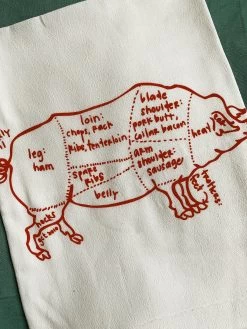 blade
shoulder:
pork butt,
collar bacon
loin:
chops, rack
ribs, tenderloin
leg:
ham
head
arm
shoulder:
sausage
spare
ribs
belly
hocks